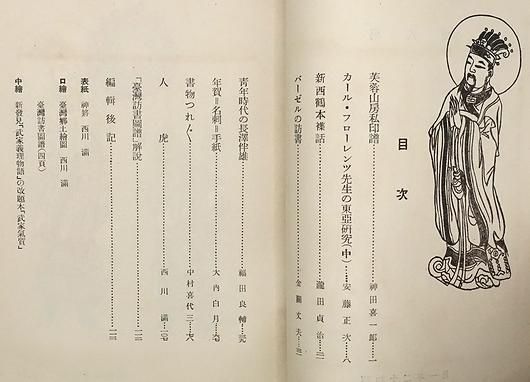 目次
芙蓉山房私印譜……神田喜一郎…一
カール・フローレンツ先生の東亞硏究(中)……安藤正次…八
新西鶴本襍話……瀧田貞治…
バーゼルの訪書……金關丈夫…
靑年時代の長澤伴雄……福田良輔…
年賀=名刺=手紙……大內白月…
書物つれ〴〵……中村喜代三…
人虎……西川滿…
「臺灣訪書圖譜」解說……
編輯後記……
表紙 神將 西川滿
口繪 臺灣鄕土繪圖 西川滿
臺灣訪書圖譜(四頁)
中繪 新發見「武家義理物語」の改題本「武家氣質」